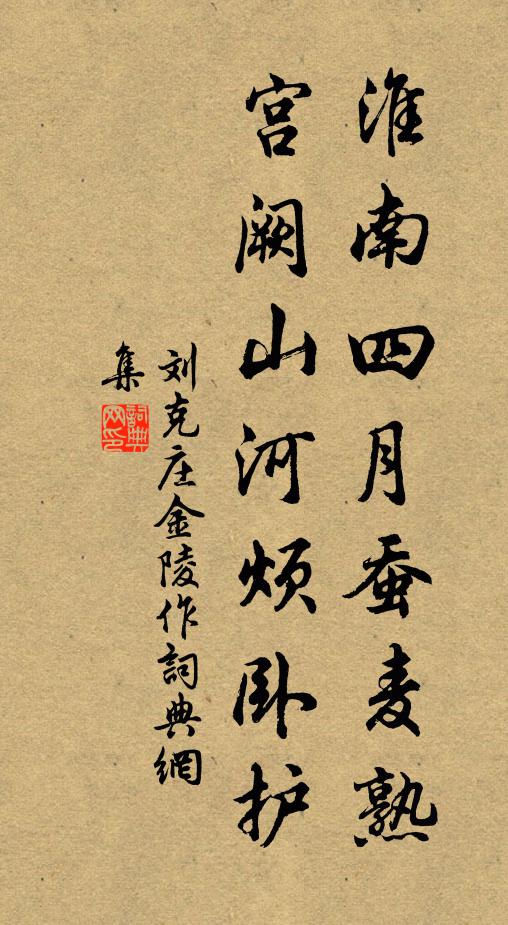 淮南四月蚕麦熟
宫阙山河烦卧护
刘克庄金陵作詞典網
集
詞典网印